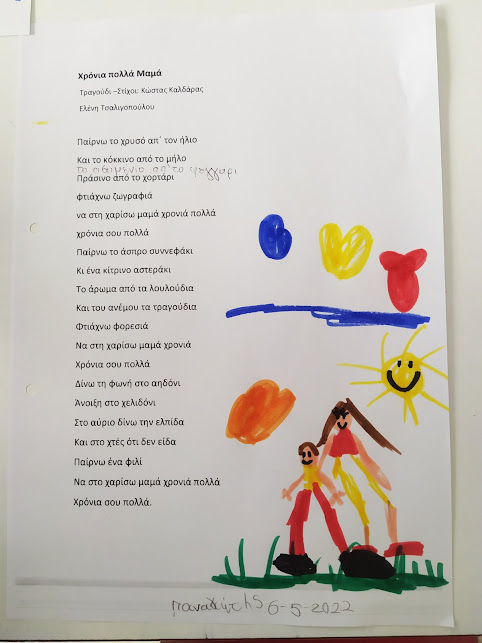 Χρόνια πολλά Μαμά
Τραγούδι –Στίχοι: Κώστας Καλδάρας
Ελένη Τσαλιγοπούλου
Παίρνω το χρυσό απ΄ τον ήλιο
Και το κόκκινο από το μήλο
Το ασημένιο απ'το φεγγάρι
Πράσινο από το χορτάρι
φτιάχνω ζωγραφιά
να στη χαρίσω μαμά χρονιά πολλά
χρόνια σου πολλά
Παίρνω το άσπρο συννεφάκι
Κι ένα κίτρινο αστεράκι
Το άρωμα από τα λουλούδια
Και του ανέμου τα τραγούδια
Φτιάχνω φορεσιά
Να στη χαρίσω μαμά χρονιά
Χρόνια σου πολλά
Δίνω τη φωνή στο αηδόνι
Άνοιξη στο χελιδόνι
Στο αύριο δίνω την ελπίδα
Και στο χτές ότι δεν είδα
Παίρνω ένα φιλί
Να στο χαρίσω μαμά χρονιά πολλά
Χρόνια σου πολλά.
παναγιώτης 6-5-2022